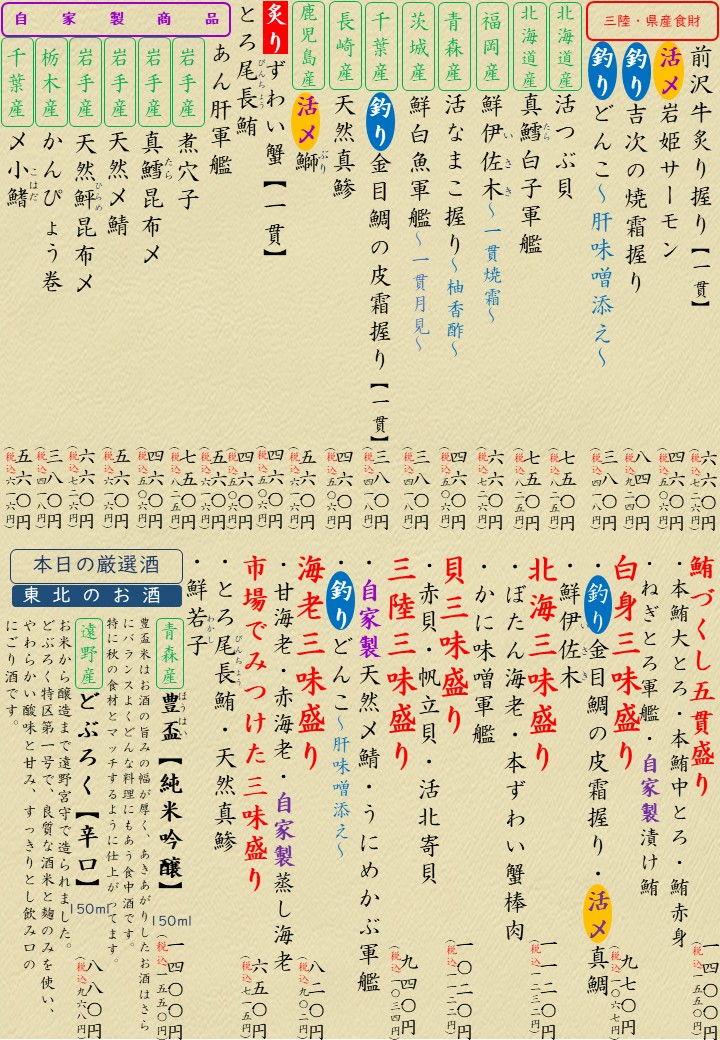 三陸・県産食財
前沢牛炙り握り【一貫】 六六〇円
(税込七二六円)
活〆岩姫サーモン 四六〇円
(税込五〇六円)
釣り吉次の焼霜握り 八四〇円
(税込九二四円)
釣りどんこ～肝味噌添え～ 三八〇円
(税込四一八円)
北海道産 活つぶ貝 七五〇円
(税込八二五円)
北海道産 真鱈白子軍艦 七五〇円
たら
(税込八二五円)
福岡産 鮮伊佐木～一貫焼霜～ 六六〇円
いさき
(税込七二六円)
青森産 活なまこ握り～柚香酢～ 四六〇円
(税込五〇六円)
茨城産 鮮白魚軍艦～一貫月見～ 三八〇円
(税込四一八円)
千葉産 釣り金目鯛の皮霜握り【一貫】 三八〇円
(税込四一八円)
長崎産 天然真鯵 四六〇円
(税込五〇六円)
鹿児島産 活〆鰤 五六〇円
ぶり
(税込六一六円)
炙りずわい蟹【一貫】 四六〇円
(税込五〇六円)
とろ尾長鮪 四六〇円
びんちょう
(税込五〇六円)
あん肝軍艦 五六〇円
(税込六一六円)
自家製商品
岩手産 煮穴子 七五〇円
(税込八二五円)
岩手産 真鱈昆布〆 四六〇円
たら
(税込五〇六円)
岩手産 天然〆鯖 五六〇円
(税込六一六円)
岩手産 天然鮃昆布〆 六六〇円
ひらめ
(税込七二六円)
栃木産 かんぴょう巻 三八〇円
(税込四一八円)
千葉産 〆小鰭 五六〇円
こはだ
(税込六一六円)
鮪づくし五貫盛り 一四〇〇円
(税込一五五〇円)
・本鮪大とろ・本鮪中とろ・鮪赤身
・ねぎとろ軍艦・自家製漬け鮪
白身三味盛り 九七〇円
(税込一〇六七円)
・釣り金目鯛の皮霜握り・活〆真鯛
・鮮伊佐木
いさき
北海三味盛り 一一二〇円
(税込一二三二円)
・ぼたん海老・本ずわい蟹棒肉
・かに味噌軍艦
貝三味盛り 一〇二〇円
(税込一一二二円)
・赤貝・帆立貝・活北寄貝
三陸三味盛り 九四〇円
(税込一〇三四円)
・自家製天然〆鯖・うにめかぶ軍艦
・釣りどんこ～肝味噌添え～
海老三味盛り 八二〇円
(税込九〇二円)
・甘海老・赤海老・自家製蒸し海老
市場でみつけた三味盛り 六五〇円
(税込七一五円)
・とろ尾長鮪・天然真鯵
びんちょう
・鮮若子
わかし
本日の厳選酒
東北のお酒
青森産 豊盃【純米吟醸】 150ml 一四〇〇円
ほうはい
(税込一五五〇円)
豊盃米はお酒の旨みの幅が厚く、あきあがりしたお酒はさら
にバランスよくどんな料理にもあう食中酒です。
特に秋の食材とマッチするように仕上がってます。
遠野産 どぶろく【辛口】 150ml 八八〇円
(税込九六八円)
お米から醸造まで遠野宮守で造られました。
どぶろく特区第一号で、良質な酒米と麹のみを使い、
やわらかい酸味と甘み、すっきりとし飲み口の
にごり酒です。